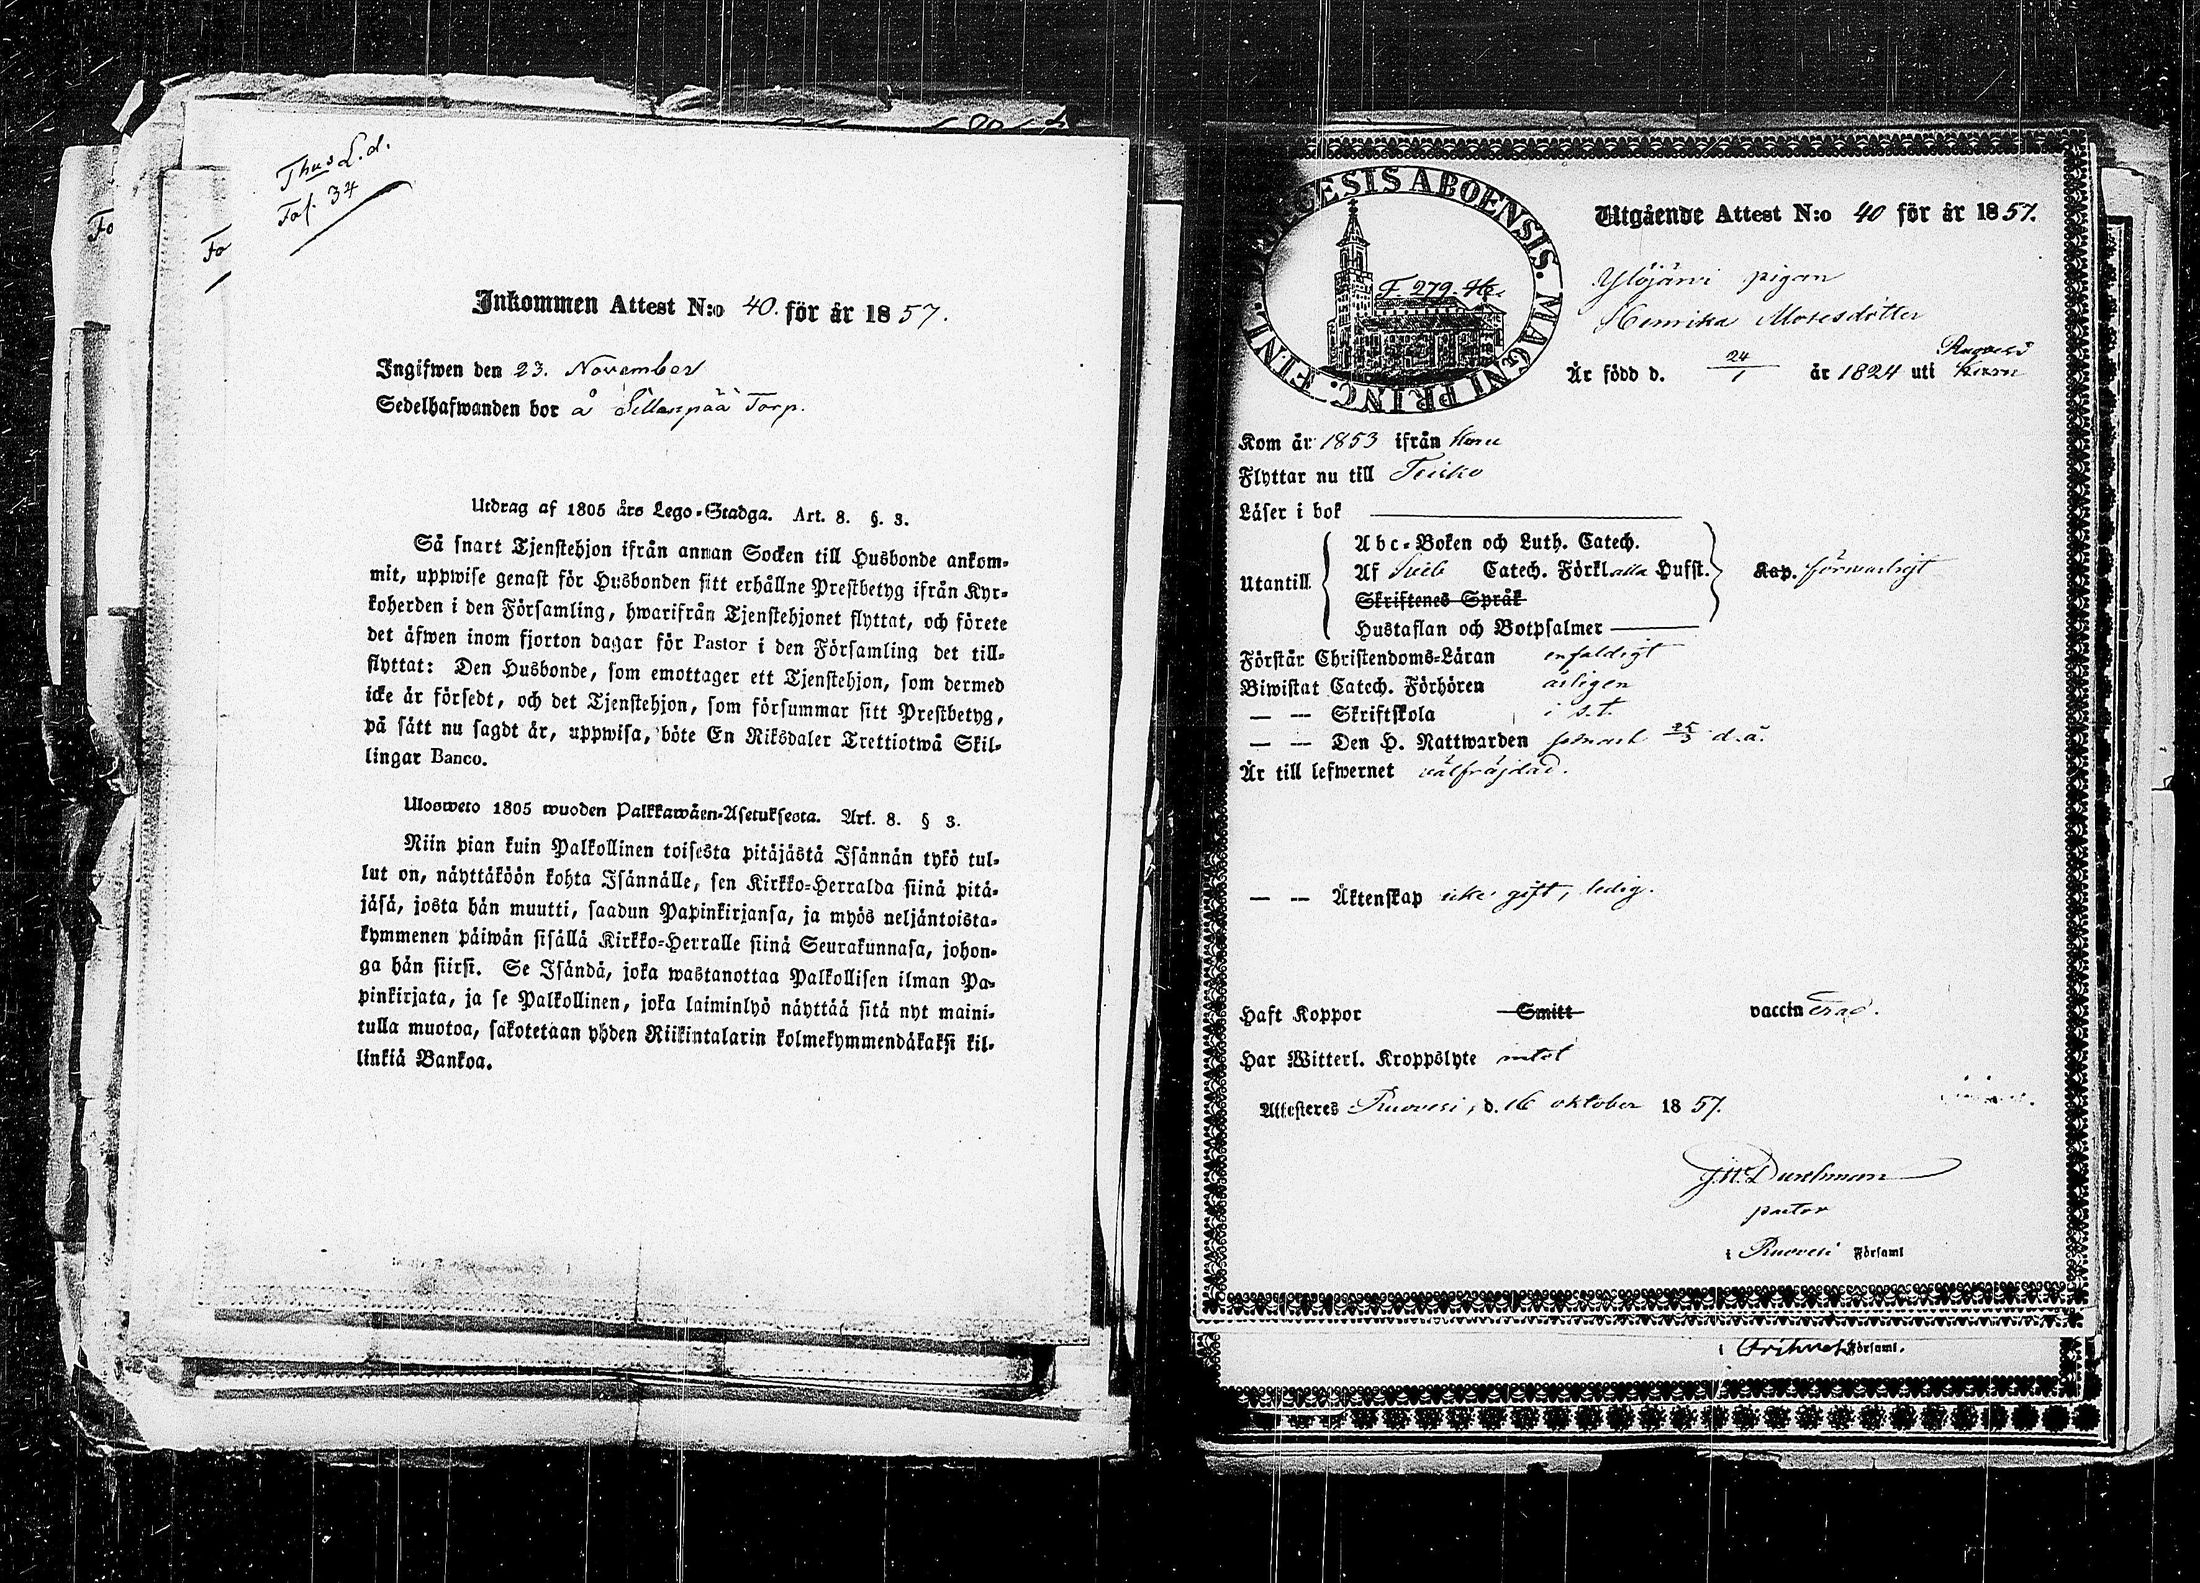 Thus L.d.
Fol. 34
Fo
Fo
Inkommen Attest N:o 40. för år 1857.
Ingifwen den 23. November
Sedelhafwanden bor å Sillanpää Torp.
Utdrag af 1805 års Lego-Stadga. Art. 8. §. 3.
Så snart Tjenstehjon ifrån annan Socken till Husbonde ankom-
mit, uppwise genast för Husbonden sitt erhållne Prestbetyg ifrån Kyr-
koherden i den Församling, hwarifrån Tjenstehjonet flyttat, och förete
det äfwen inom fjorton dagar för Pastor i den Församling det till-
flyttat: Den Husbonde, som emottager ett Tjenstehjon, som dermed
icke är försedt, och det Tjenstehjon, som försummar sitt Prestbetyg,
på sätt nu sagdt är, uppwisa, böte En Riksdaler Trettiotwå Skil-
lingar Banco.
Uloswето 1805 wuoden Palkkawäen-Asetuksesta. Art. 8. § 3.
Niin pian kuin Palkollinen toisesta pitäjästä Isännän tykö tul-
lut on, näyttäköön kohta Isännälle, sen Kirkko-Herralda siinä pitä-
jäsä, josta hän muutti, saadun Papinkirjansa, ja myös neljäntoista-
kymmenen päiwän sisällä Kirkko-Herralle siinä Seurakunnasa, johon-
ga hän siirsi. Se Isändä, joka wastanottaa Palkollisen ilman Pa-
pinkirjata, ja se Palkollinen, joka laiminlyö näyttää sitä nyt maini-
tulla muotoa, sakotetaan yhden Riikintalarin kolmekymmendäkaksi kil-
linkiä Bankoa.
DIOECESIS ABOENSIS. MAGNI PRINC. FINL.
F 279.
Utgående Attest N:o 40 för år 1857.
Ylöjärvi pigan
Henrika Mosesdotter
Är född d. 24/1 år 1824 uti Ruovesi Kuru
Kom år 1853 ifrån Kuru
Flyttar nu till Teisko
Läser i bok
Utantill
Abc-Boken och Luth. Catech.
Af Sveb Catech. Förkl alla Husst.
Skriftenes Språk
Hustaflan och Botpsalmer
Kap. försvarligt
Förstår Christendoms-Läran enfaldigt
Biwistat Catech. Förhören årligen
— — Skriftskola i s.t.
— — Den H. Nattwarden senast 25/3 d.å.
Är till lefwernet välfräjdad.
— — Äktenskap icke gift, ledig.
Haft Koppor Smitt vaccin erad.
Har Witterl. Kroppslyte intet
Attesteres Ruovesi, d. 16 oktober 1857.
pastor
i Ruovesi Församl
i Församl.